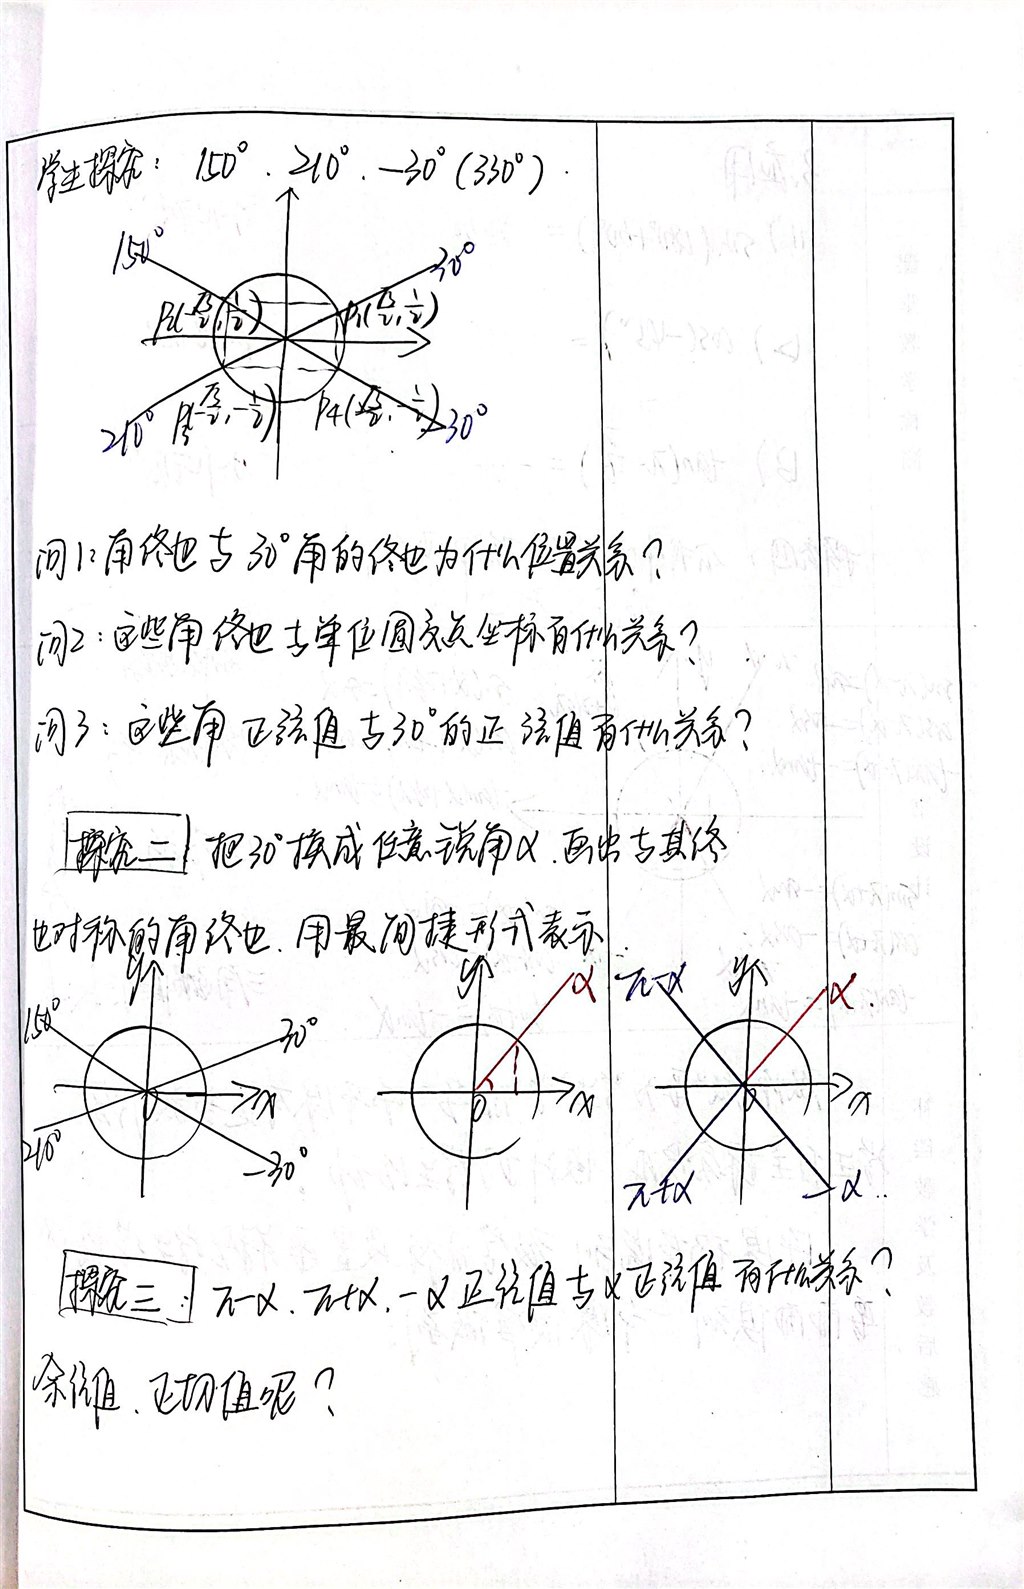 学生探究： 150°、210°、-30°(330°)．
150°
30°
P2(-√3/2, 1/2)
P1(√3/2, 1/2)
210°
P3(-√3/2, -1/2)
P4(√3/2, -1/2)
-30°
问1：角终边与30°角的终边为什么位置关系？
问2：这些角终边与单位圆交点坐标有什么关系？
问3：这些角正弦值与30°的正弦值有什么关系？
探究二 把30°换成任意锐角α．画出与其终
边对称的角终边．用最简捷形式表示．
y
150°
30°
O
x
210°
-30°
y
α
O
x
π-α
y
α
O
x
π+α
-α
探究三： π-α、π+α、-α正弦值与α正弦值有什么关系？
余弦值、正切值呢？